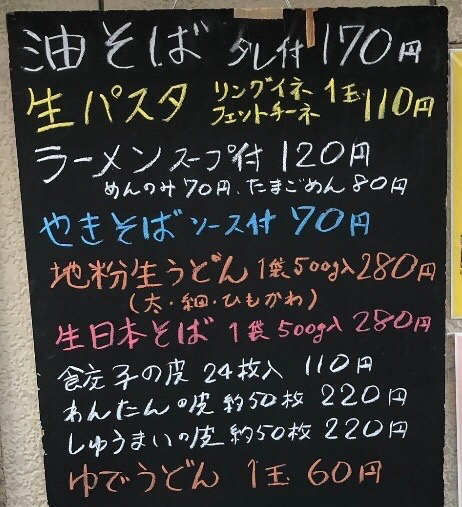 油そば タレ付 170円
生パスタ リングイネ フェットチーネ 1玉 110円
ラーメンスープ付 120円
めんのみ70円、たまごめん80円
やきそば ソース付 70円
地粉生うどん 1袋500g入 280円
(太・細・ひもかわ)
生日本そば 1袋500g入 280円
餃子の皮 24枚入 110円
わんたんの皮 約50枚 220円
しゅうまいの皮 約50枚 220円
ゆでうどん 1玉 60円